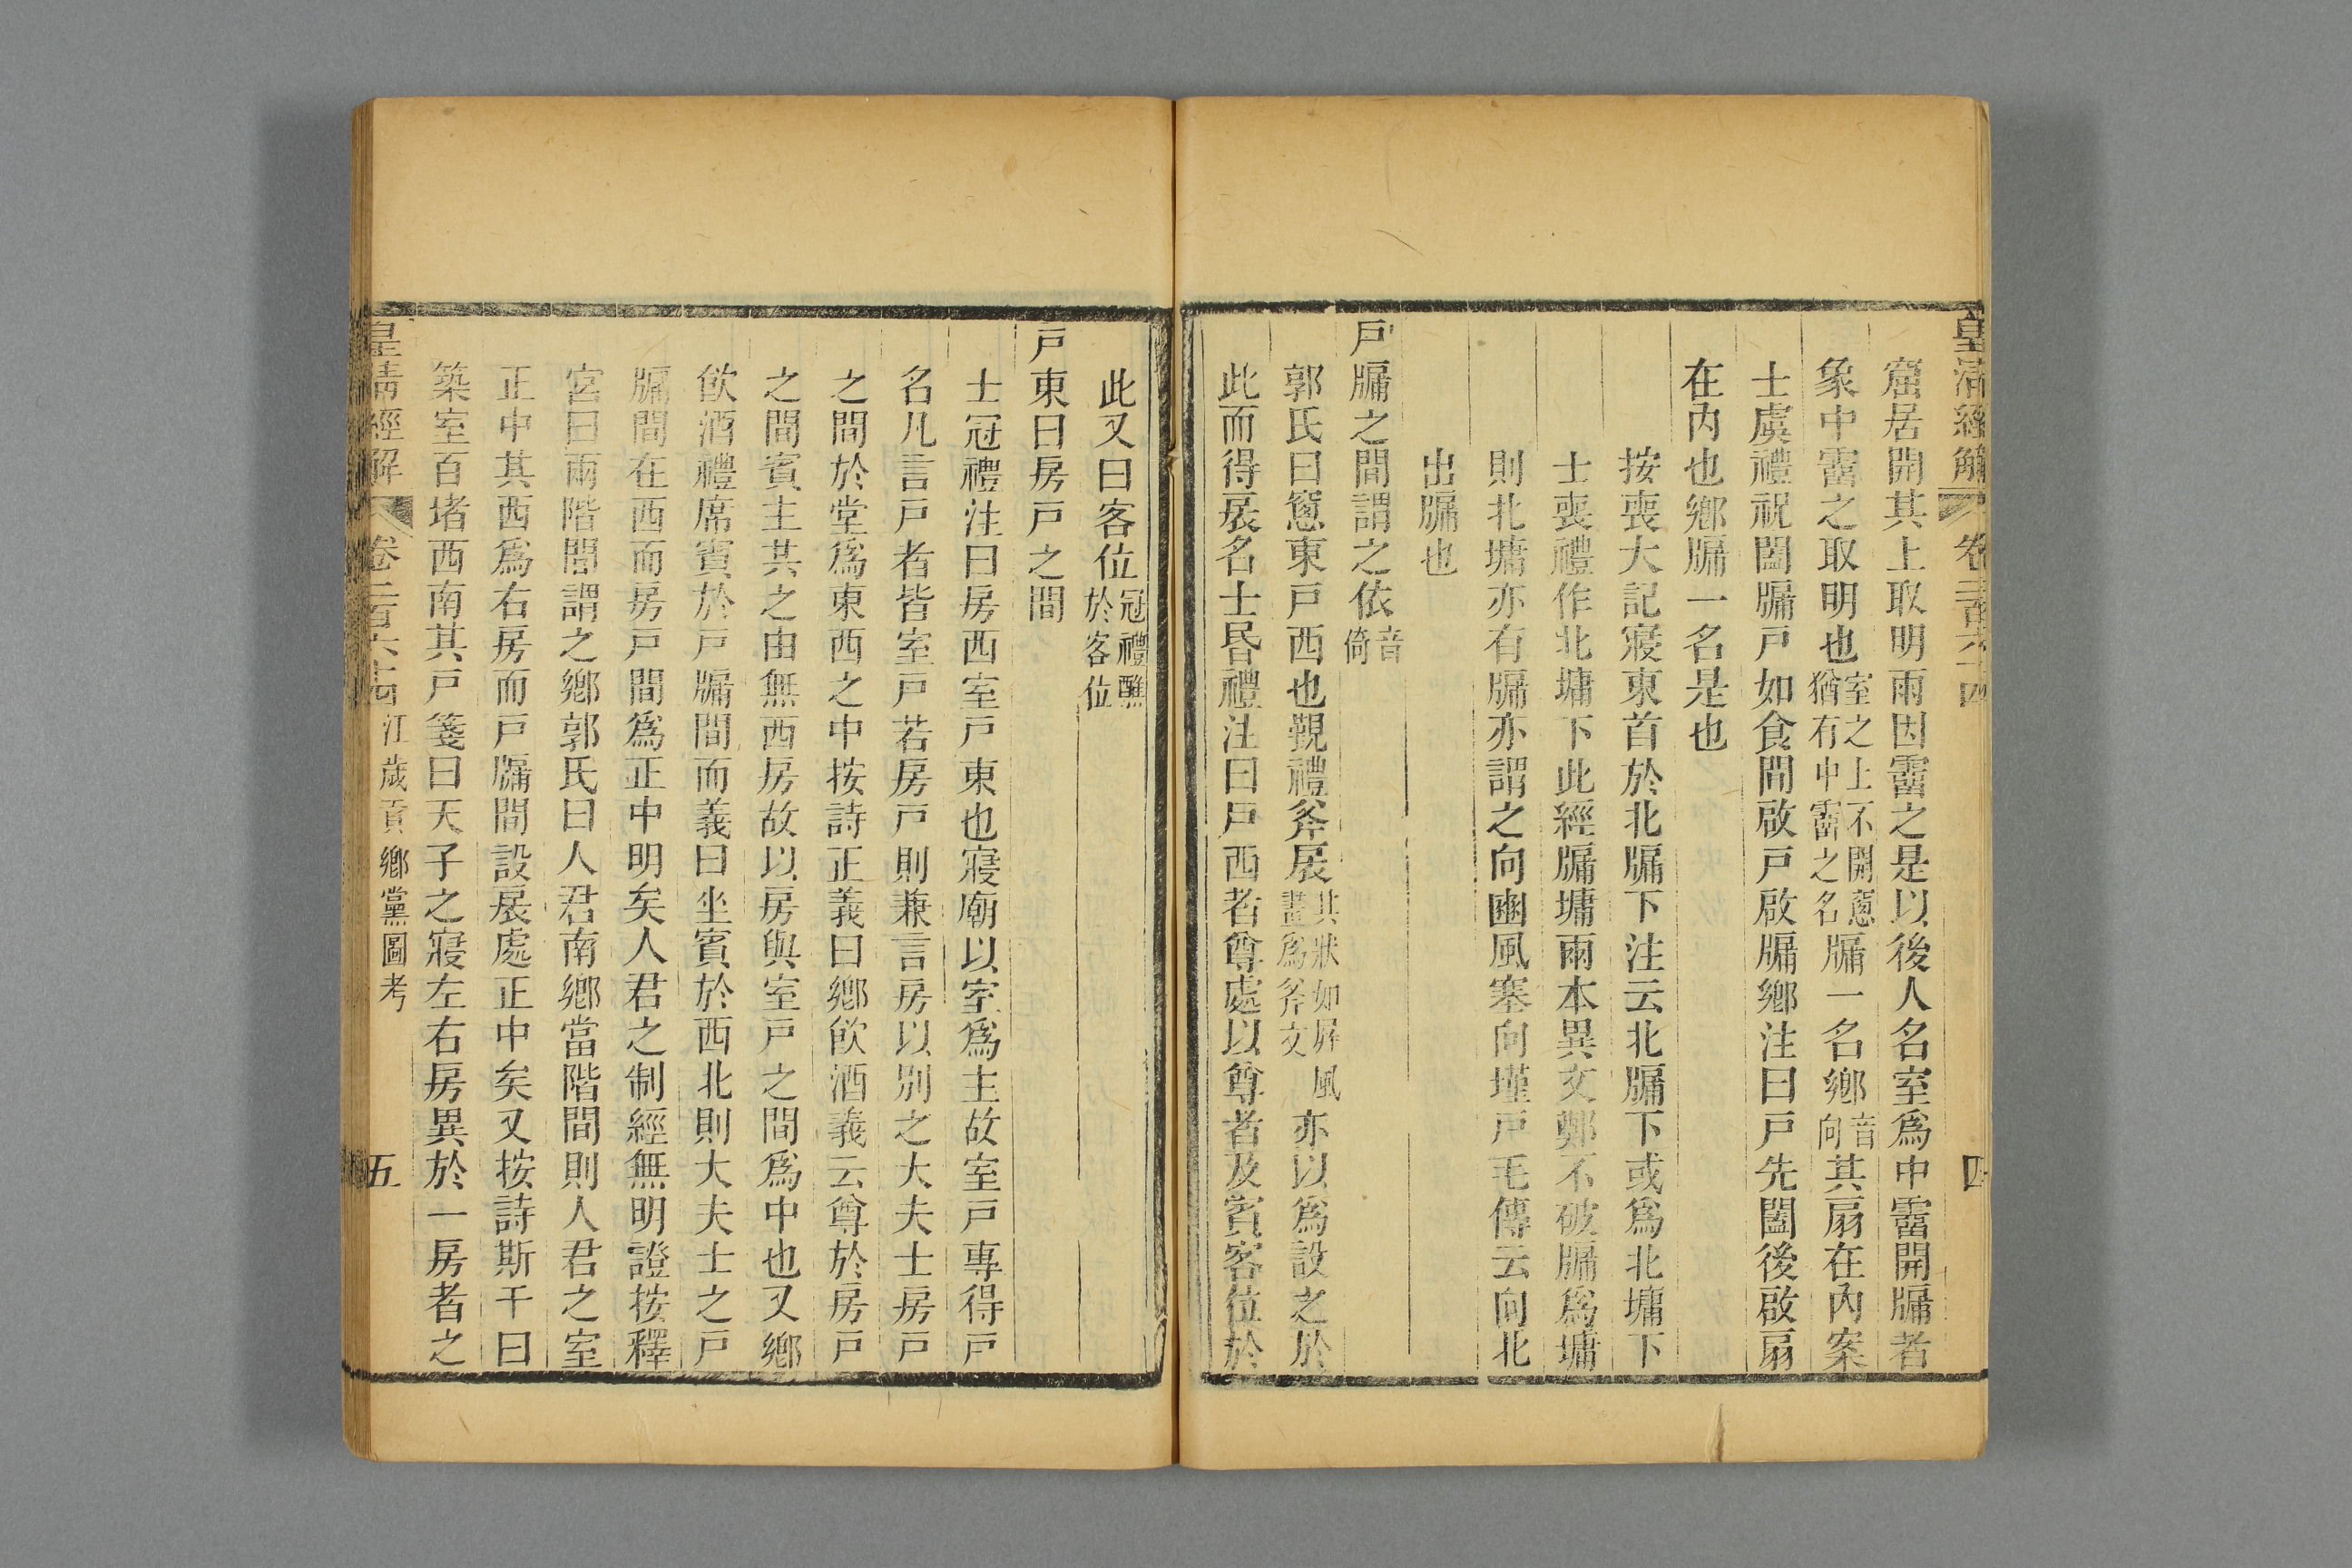 皇清經解 卷二百六十四 四
窟居開其上取明雨因霤之是以後人名室爲中霤開牖者
象中霤之取明也室之上不開窻猶有中霤之名牖一名鄉音向其扇在內案
士虞禮祝闔牖戶如食間啟戶啟牖鄉注曰戶先闔後啟扇
在內也鄉牖一名是也
按喪大記寢東首於北牖下注云北牖下或爲北墉下
士喪禮作北墉下此經牖墉兩本異文鄭不破牖爲墉
則北墉亦有牖亦謂之向豳風塞向墐戶毛傳云向北
出牖也
戶牖之間謂之依音倚
郭氏曰窻東戶西也覲禮斧扆其狀如屏風畫爲斧文亦以爲設之於
此而得扆名士昏禮注曰戶西者尊處以尊者及賓客位於
此又曰客位冠禮醮於客位
戶東曰房戶之間
士冠禮注曰房西室戶東也寢廟以室爲主故室戶專得戶
名凡言戶者皆室戶若房戶則兼言房以別之大夫士房戶
之間於堂爲東西之中按詩正義曰鄉飲酒義云尊於房戶
之間賓主共之由無西房故以房與室戶之間爲中也又鄉
飲酒禮席賓於戶牖間而義曰坐賓於西北則大夫士之戶
牖間在西而房戶間爲正中明矣人君之制經無明證按釋
宮曰兩階間謂之鄉郭氏曰人君南鄉當階間則人君之室
正中其西爲右房而戶牖間設扆處正中矣又按詩斯干曰
築室百堵西南其戶箋曰天子之寢左右房異於一房者之
皇清經解 卷二百六十四 江歲貢鄉黨圖考 五